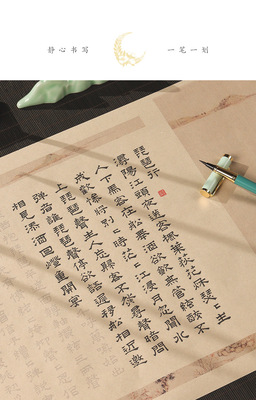 静心书写
一笔一划
琵琶行
潯陽江頭夜送客楓葉荻花秋瑟=主
人下馬客在船舉酒欲飲無管絃醉不
成歡慘將別=時茫=江浸月忽聞水
上琵琶聲主人忘歸客不發尋聲暗問
彈者誰琵琶聲停欲語遲移船相近邀
相見添酒回燈重開宴